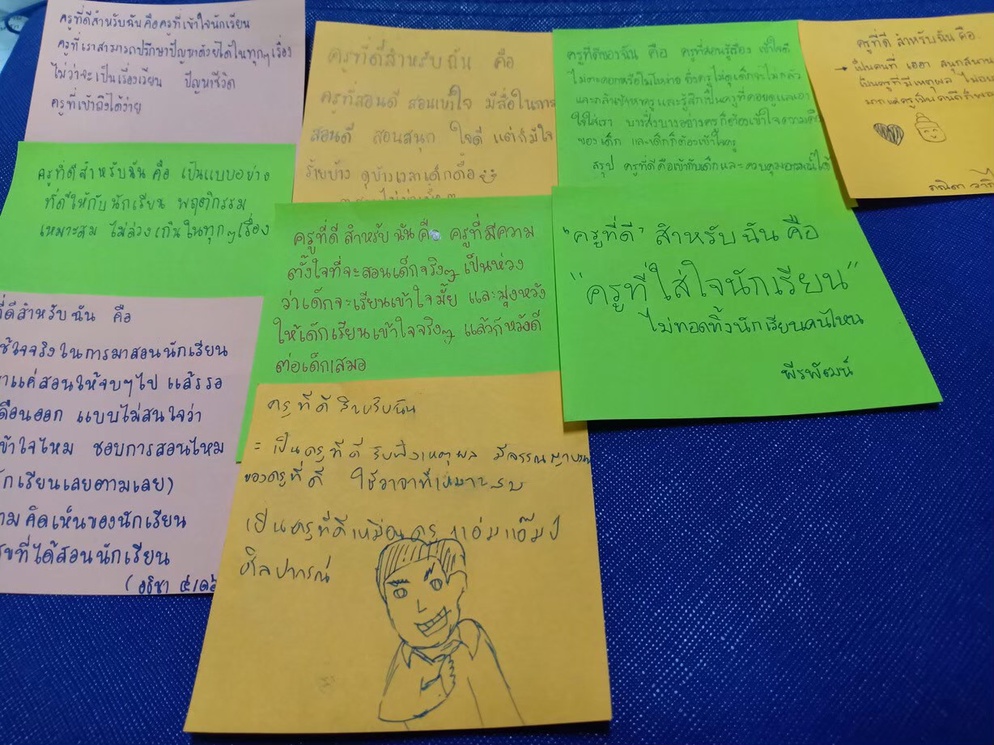 ครูที่ดีสำหรับฉันคือครูที่เข้าใจนักเรียน
ครูที่เราสามารถปรึกษาปัญหาด้วยได้ในทุกๆเรื่อง
ไม่ว่าจะเป็นเรื่องเรียน ปัญหาชีวิต
ครูที่เข้าถึงได้ง่าย
ครูที่ดีสำหรับฉัน คือ
ครูที่สอนดี สอนเข้าใจ มีสื่อในการ
สอนดี สอนสนุก ใจดี แต่ก็มีใจ
ร้ายบ้าง ดุบ้างเวลาเด็กดื้อ
ครูที่ดีของฉัน คือ ครูที่สอนรู้เรื่อง เข้าใจดี
และรู้สึกเป็นครูที่คอยดูแลเอา
ใจใส่เรา
ของเด็ก และเด็กก็ต้องเข้าใจครู
สรุป ครูที่ดีคือเข้ากับเด็กและควบคุมอารมณ์ได้
ครูที่ดี สำหรับฉัน คือ
→ เป็นคนที่ เฮฮา สนุกสนาน
เป็นครูที่มีเหตุผล
ครูที่ดีสำหรับฉัน คือ เป็นแบบอย่าง
ที่ดีให้กับนักเรียน พฤติกรรม
เหมาะสม ไม่ล่วงเกินในทุกๆเรื่อง
ครูที่ดี สำหรับฉันคือ ครูที่มีความ
ตั้งใจที่จะสอนเด็กจริงๆ เป็นห่วง
ว่าเด็กจะเรียนเข้าใจมั้ย และมุ่งหวัง
ให้เด็กเรียนเข้าใจจริงๆ แล้วก็หวังดี
ต่อเด็กเสมอ
"ครูที่ดี" สำหรับฉันคือ
"ครูที่ใส่ใจนักเรียน"
ไม่ทอดทิ้งนักเรียนคนไหน
พีรพัฒน์
ที่ดีสำหรับฉัน คือ
ใจจริงในการมาสอนนักเรียน
แค่สอนให้จบๆไป แล้วรอ
เดือนออก แบบไม่สนใจว่า
เข้าใจไหม ชอบการสอนไหม
นักเรียนเลยตามเลย)
ความคิดเห็นของนักเรียน
สุขที่ได้สอนนักเรียน
ครูที่ดี สำหรับฉัน
= เป็นครูที่ดี รับฟังเหตุผล มีจรรยาบรรณ
ของครูที่ดี ใช้วาจาที่เหมาะสม
เป็นครูที่ดีเหมือนครู
ศิลปากรณ์